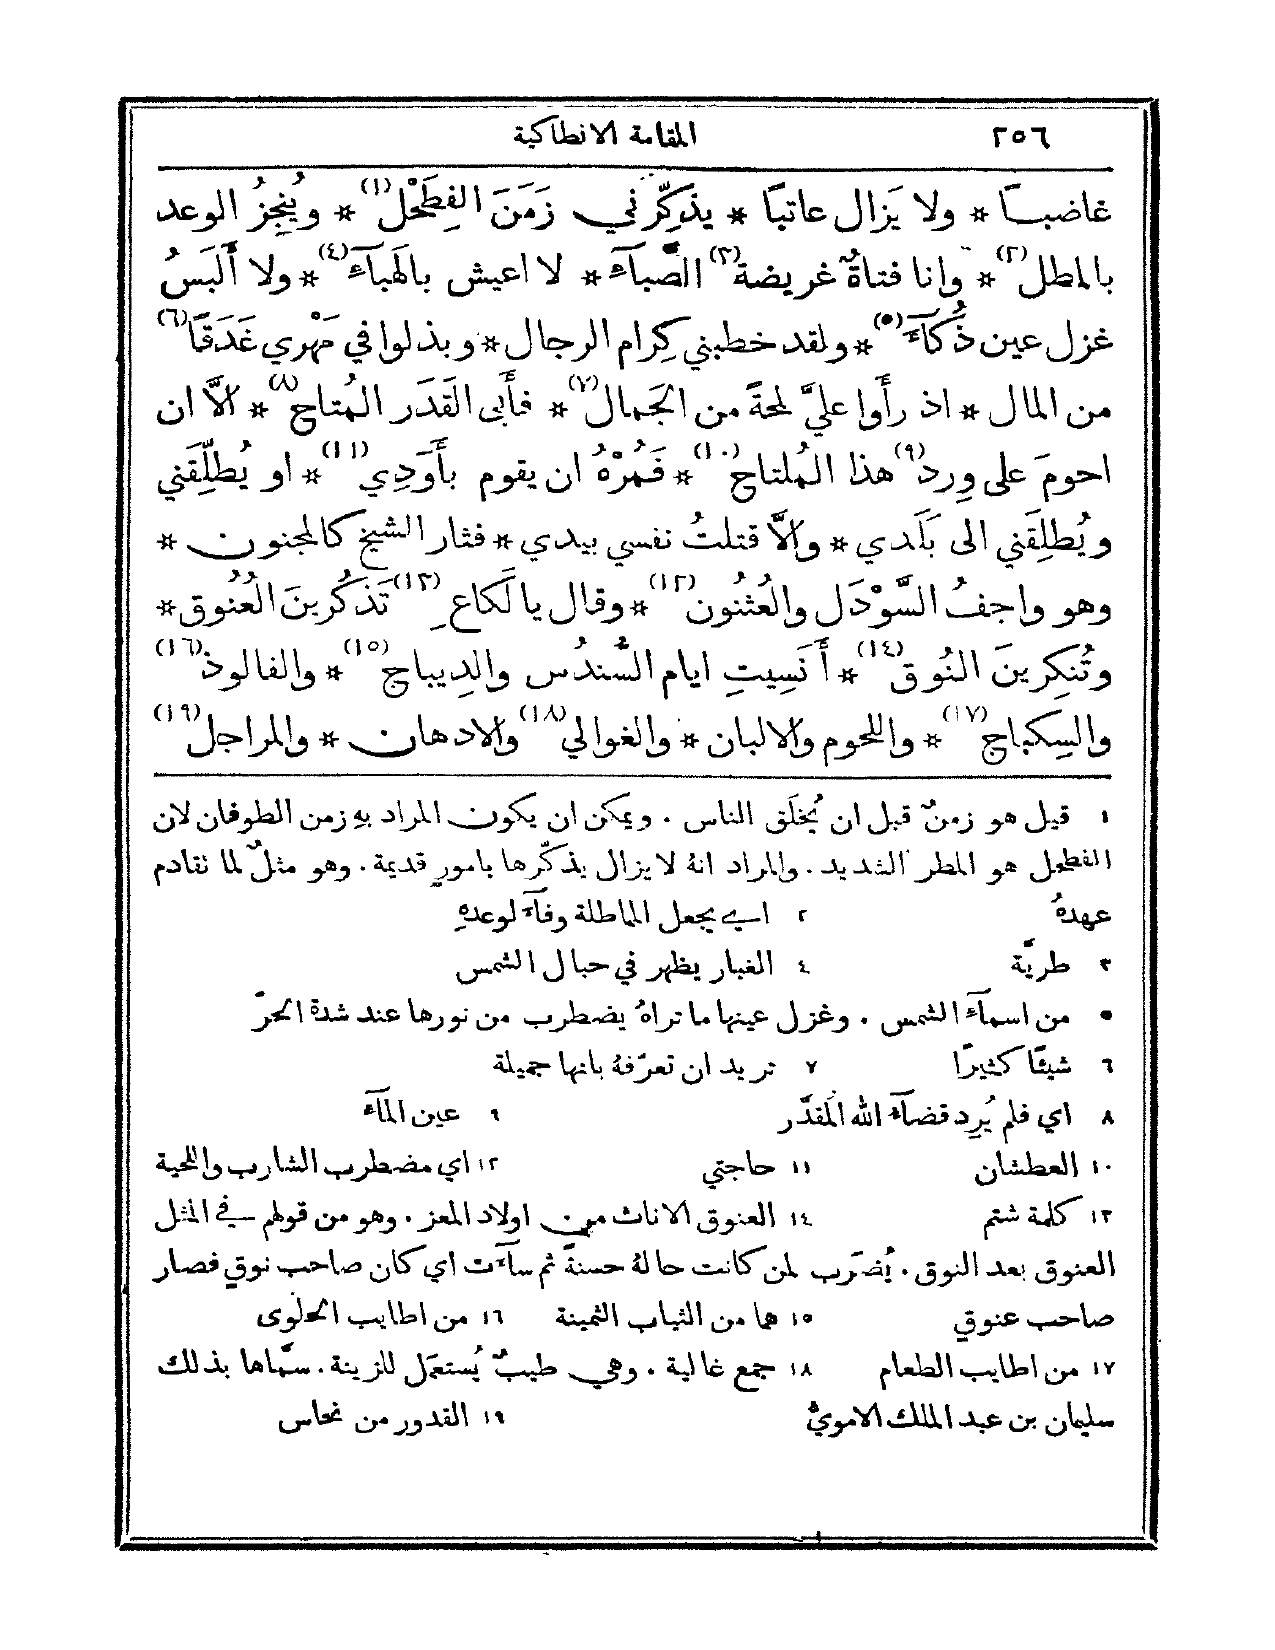 ٢٥٦ المقامة الانطاكية
غاضبًا * ولا يَزال عاتبًا * يذكِّرني زَمَنَ الفِطَحْل(١) * ويُنجِزُ الوعد
بالمطل(٢) * وانا فتاةٌ غريضة(٣) الصَّبآءَ * لا اعيش بالهَبآءَ(٤) * ولا أَلبَسُ
غزل عين ذُكآءَ(٥) * ولقد خطبني كِرام الرجال * وبذلوا في مَهْري غَدَقًا(٦)
من المال * اذ رأَوا عليَّ لمحةً من الجَمال(٧) * فأَبى القَدَر المُتاح(٨) * الَّا ان
احومَ على وِرد(٩) هذا المُلتاح(١٠) * فَمُرْهُ ان يقوم بأَوَدِي(١١) * او يُطلِّقَني
ويُطلِقَني الى بَلَدي * والَّا قتلتُ نفسي بيدي * فثار الشيخ كالمجنون *
وهو واجفُ السَّوْدَل والعُثنون(١٢) * وقال يا لَكاعِ(١٣) تَذكُرينَ العُنوق *
وتُنكِرينَ النُوق(١٤) * أَنَسِيتِ ايام السُّندُس والدِيباج(١٥) * والفالوذ(١٦)
والسِكباج(١٧) * واللحوم والالبان * والغوالي(١٨) والادهان * والمراجل(١٩)
١ قيل هو زمنٌ قبل ان يُخلَق الناس . ويمكن ان يكون المراد بهِ زمن الطوفان لان
الفطحل هو المطر الشديد . والمراد انهُ لا يزال يذكّرها بامورٍ قديمة . وهو مثلٌ لما تقادم
عهدهُ ٢ اي يجعل المماطلة وفآءً لوعدهِ
٣ طريَّة ٤ الغبار يظهر في حبال الشمس
٥ من اسمآء الشمس . وغزل عينها ما تراهُ يضطرب من نورها عند شدة الحرّ
٦ شيئًا كثيرًا ٧ تريد ان تعرّفهُ بانها جميلة
٨ اي فلم يُرِد قضآء الله المُقدَّر ٩ عين المآء
١٠ العطشان ١١ حاجتي ١٢ اي مضطرب الشارب واللحية
١٣ كلمة شتم ١٤ العنوق الاناث من اولاد المعز . وهو من قولهم في المثل
العنوق بعد النوق . يُضرَب لمن كانت حالهُ حسنةً ثم سآءت اي كان صاحب نوقٍ فصار
صاحب عنوقٍ ١٥ هما من الثياب الثمينة ١٦ من اطايب الحلوى
١٧ من اطايب الطعام ١٨ جمع غالية . وهي طيبٌ يُستعمَل للزينة . سمَّاها بذلك
سليمان بن عبد الملك الامويُّ ١٩ القدور من نحاس